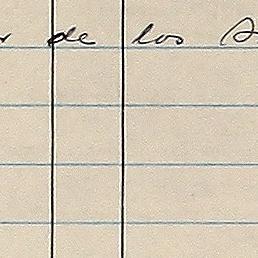 de los